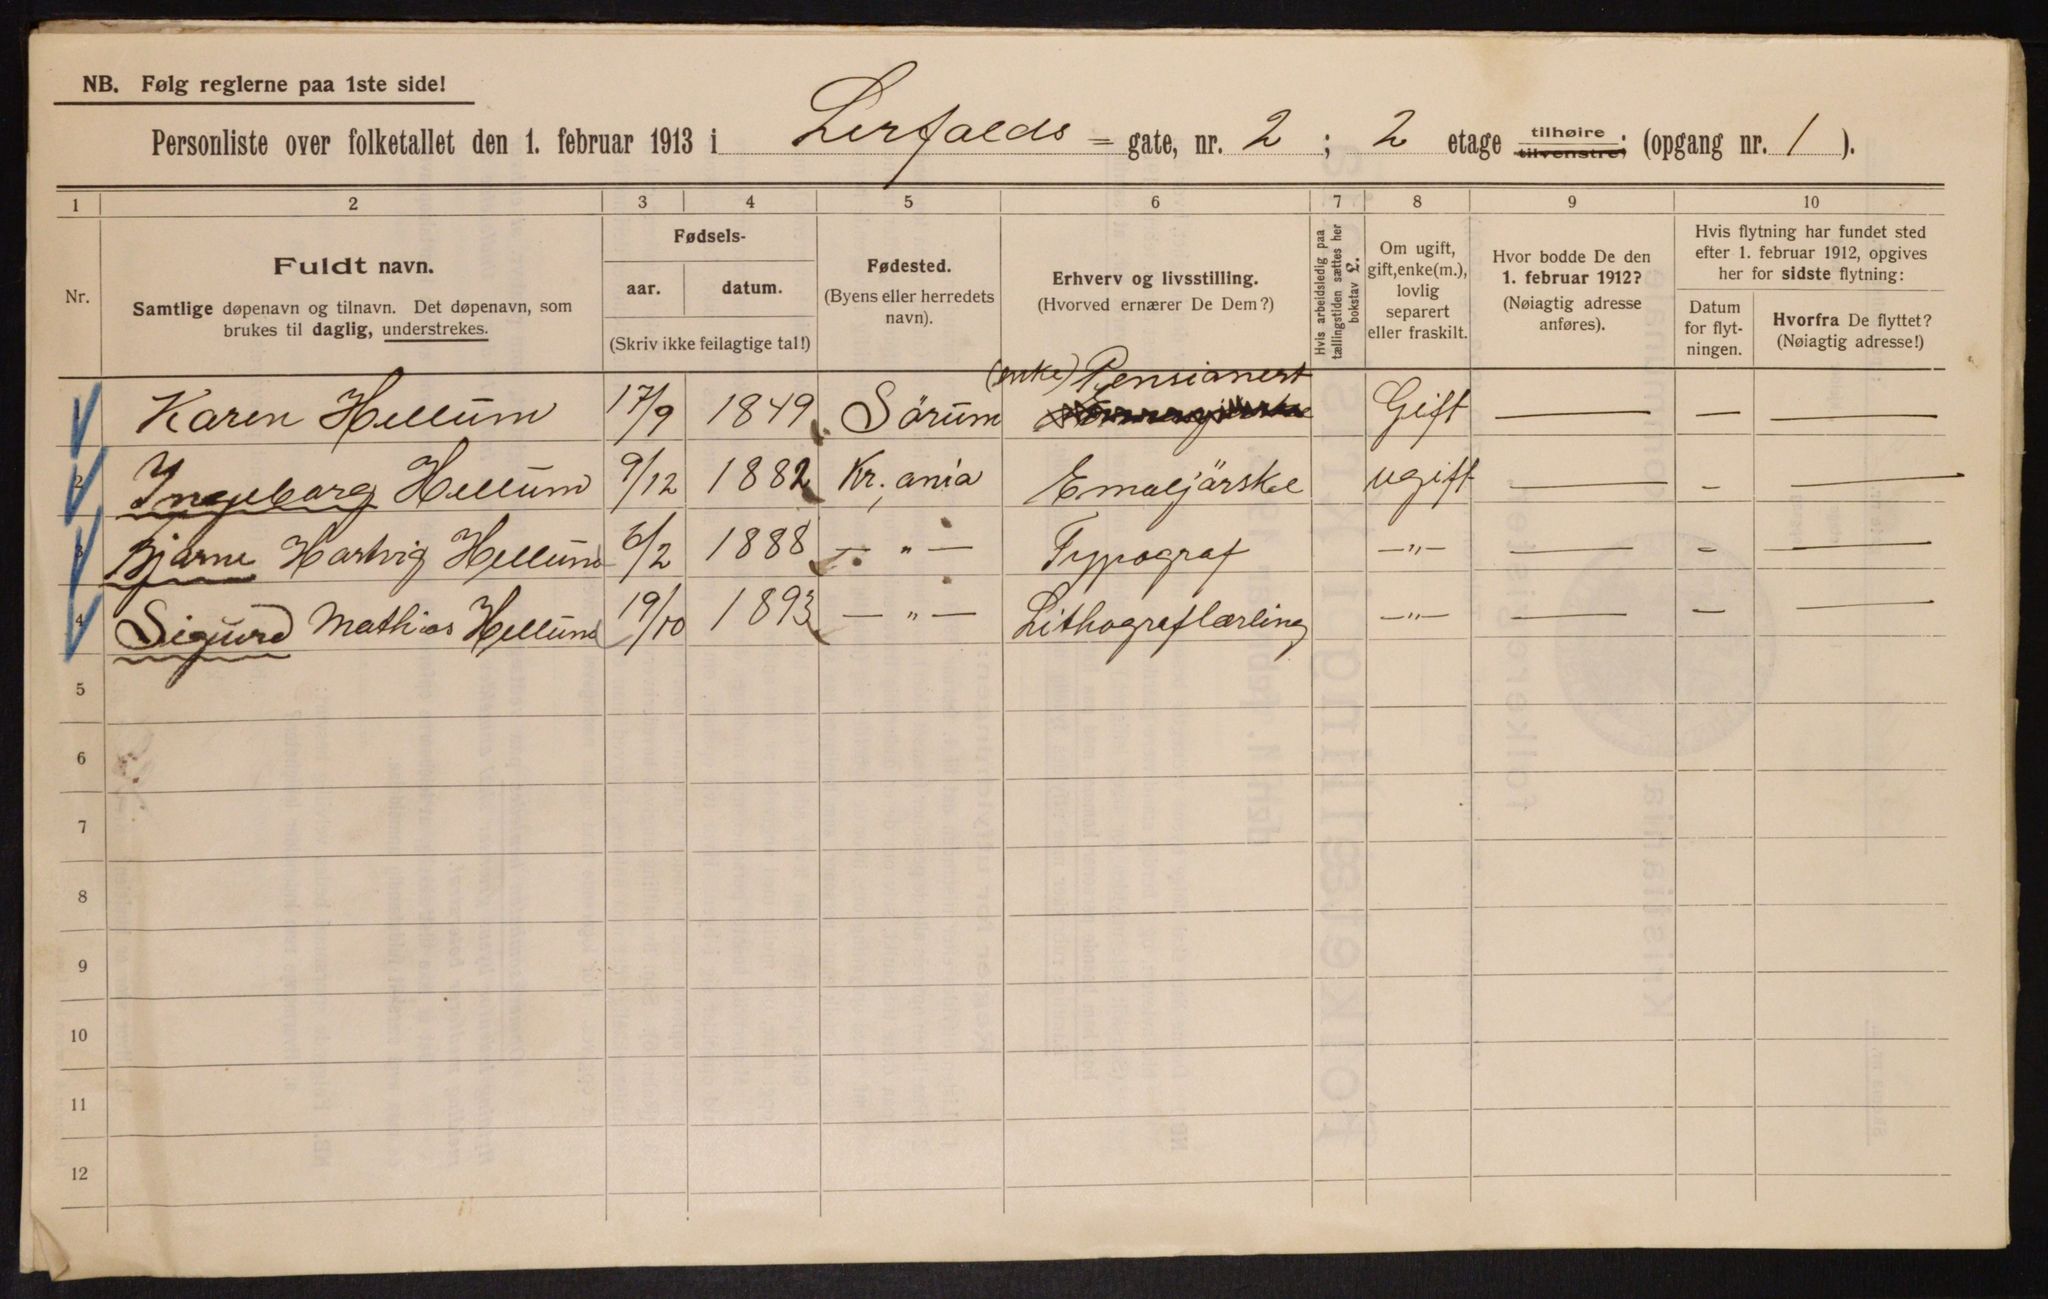 NB. Følg reglerne paa 1ste side!
Personliste over folketallet den 1. februar 1913 i Lerfalds = gate, nr. 2 ; 2 etage tilhøire tilvenstre; (opgang nr. 1 ).
1 2 3 4 5 6 7 8 9 10
Nr.
Fuldt navn.
Samtlige døpenavn og tilnavn. Det døpenavn, som
brukes til daglig, understrekes.
Fødsels-
aar. datum.
(Skriv ikke feilagtige tal!)
Fødested.
(Byens eller herredets
navn).
Erhverv og livsstilling.
(Hvorved ernærer De Dem?)
Hvis arbeidsledig paa
tællingstiden sættes her
bokstav £.
Om ugift,
gift, enke(m.),
lovlig
separert
eller fraskilt.
Hvor bodde De den
1. februar 1912?
(Nøiagtig adresse
anføres).
Hvis flytning har fundet sted
efter 1. februar 1912, opgives
her for sidste flytning:
Datum
for flyt-
ningen.
Hvorfra De flyttet?
(Nøiagtig adresse!)
(enke) Pensionert
Karen Hellum 17/9 1849 Sörum Gift — — —
2 Ingeborg Hellum 9/12 1882 Kr.ania Emaljörske ugift — — —
3 Bjarne Hartvig Hellum 6/2 1888 — " — Typograf —"— — — —
4 Sigurd Mathias Hellum 19/10 1893 — " — Lithograflærling —"— — — —
5
6
7
8
9
10
11
12